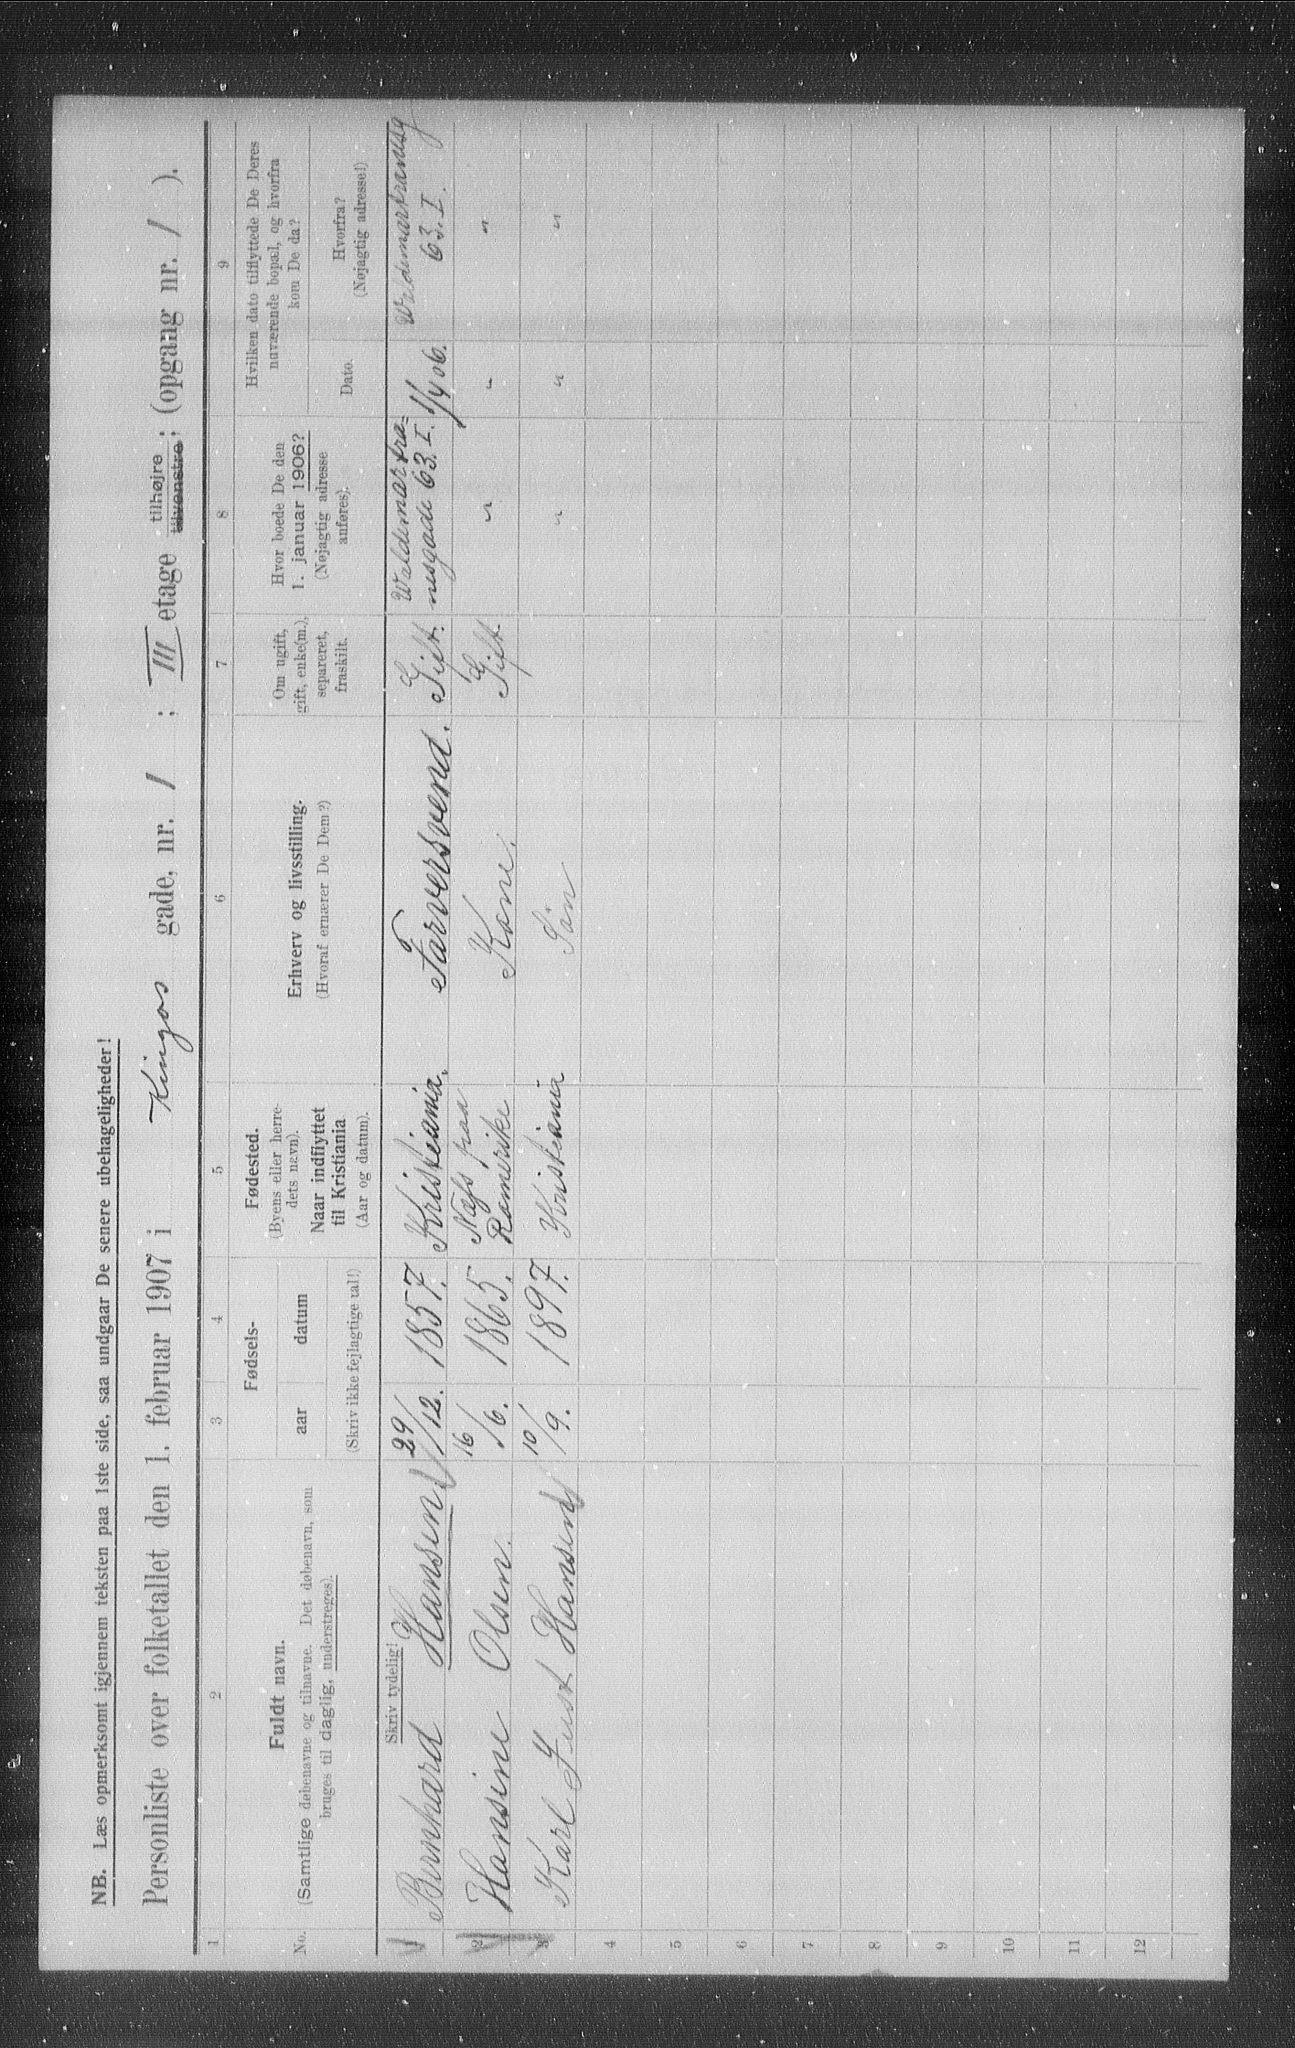 NB. Læs opmerksomt igjennem teksten paa 1ste side, saa undgaar De senere ubehageligheder!
Personliste over folketallet den 1. februar 1907 i Kingos gade, nr. 1 ; III etage tilhøjre ; (opgang nr. 1 ).
tilvenstre
1 2 3 4 5 6 7 8 9
No.
Fuldt navn.
(Samtlige døbenavne og tilnavne. Det døbenavn, som
bruges til daglig, understreges).
Fødsels-
aar datum
(Skriv ikke fejlagtige tal!)
Fødested.
(Byens eller herre-
dets navn).
Naar indflyttet
til Kristiania
(Aar og datum).
Erhverv og livsstilling.
(Hvoraf ernærer De Dem?)
Om ugift,
gift, enke(m.),
separeret,
fraskilt.
Hvor boede De den
1. januar 1906?
(Nøjagtig adresse
anføres).
Hvilken dato tilflyttede De Deres
nuværende bopæl, og hvorfra
kom De da?
Dato.
Hvorfra?
(Nøjagtig adresse!)
Skriv tydelig!
Bernhard Hansen 29/12. 1857. Kristiania. Farversvend. Gift. Waldemar tra=
nesgade 63. I. 1/4 06. Waldemartranesg
63. I.
2 Hansine Olsen. 16/6. 1865. Næs paa
Romerike Kone. Gift. " " "
3 Karl Just Hansen 10/9. 1897. Kristiania Søn " " "
4
5
6
7
8
9
10
11
12